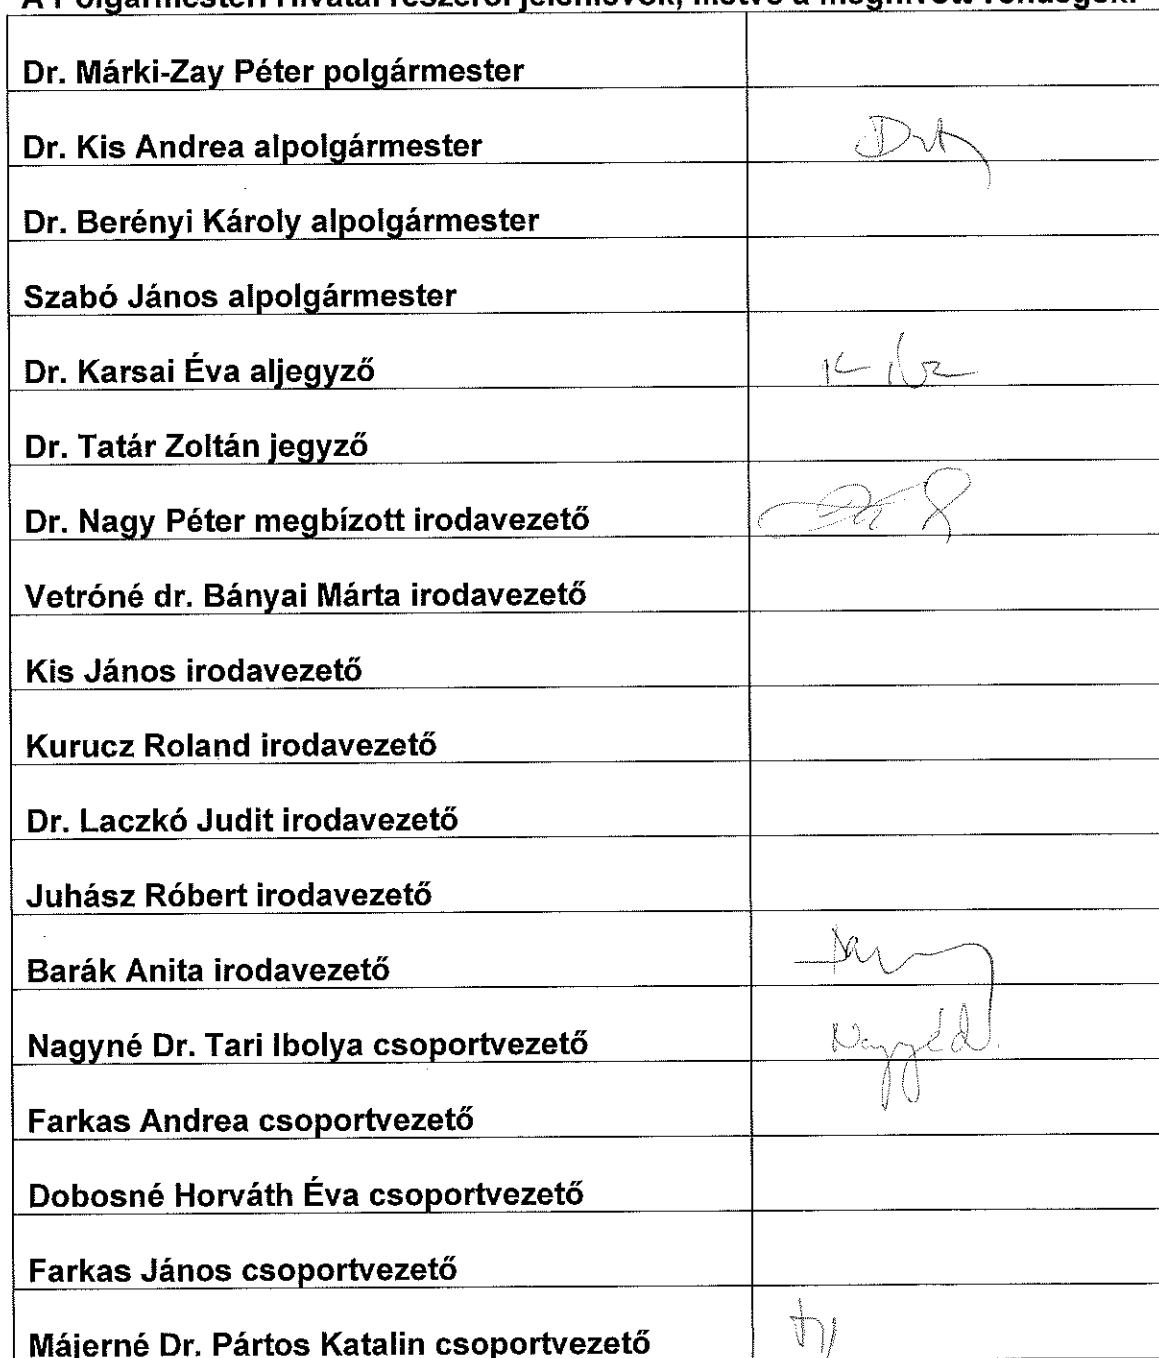 A Polgármesteri Hivatal részéről jelenlévők, illetve a meghívott vendégek:
Dr. Márki-Zay Péter polgármester
Dr. Kis Andrea alpolgármester
Dr. Berényi Károly alpolgármester
Szabó János alpolgármester
Dr. Karsai Éva aljegyző
Dr. Tatár Zoltán jegyző
Dr. Nagy Péter megbízott irodavezető
Vetróné dr. Bányai Márta irodavezető
Kis János irodavezető
Kurucz Roland irodavezető
Dr. Laczkó Judit irodavezető
Juhász Róbert irodavezető
Barák Anita irodavezető
Nagyné Dr. Tari Ibolya csoportvezető
Farkas Andrea csoportvezető
Dobosné Horváth Éva csoportvezető
Farkas János csoportvezető
Májerné Dr. Pártos Katalin csoportvezető